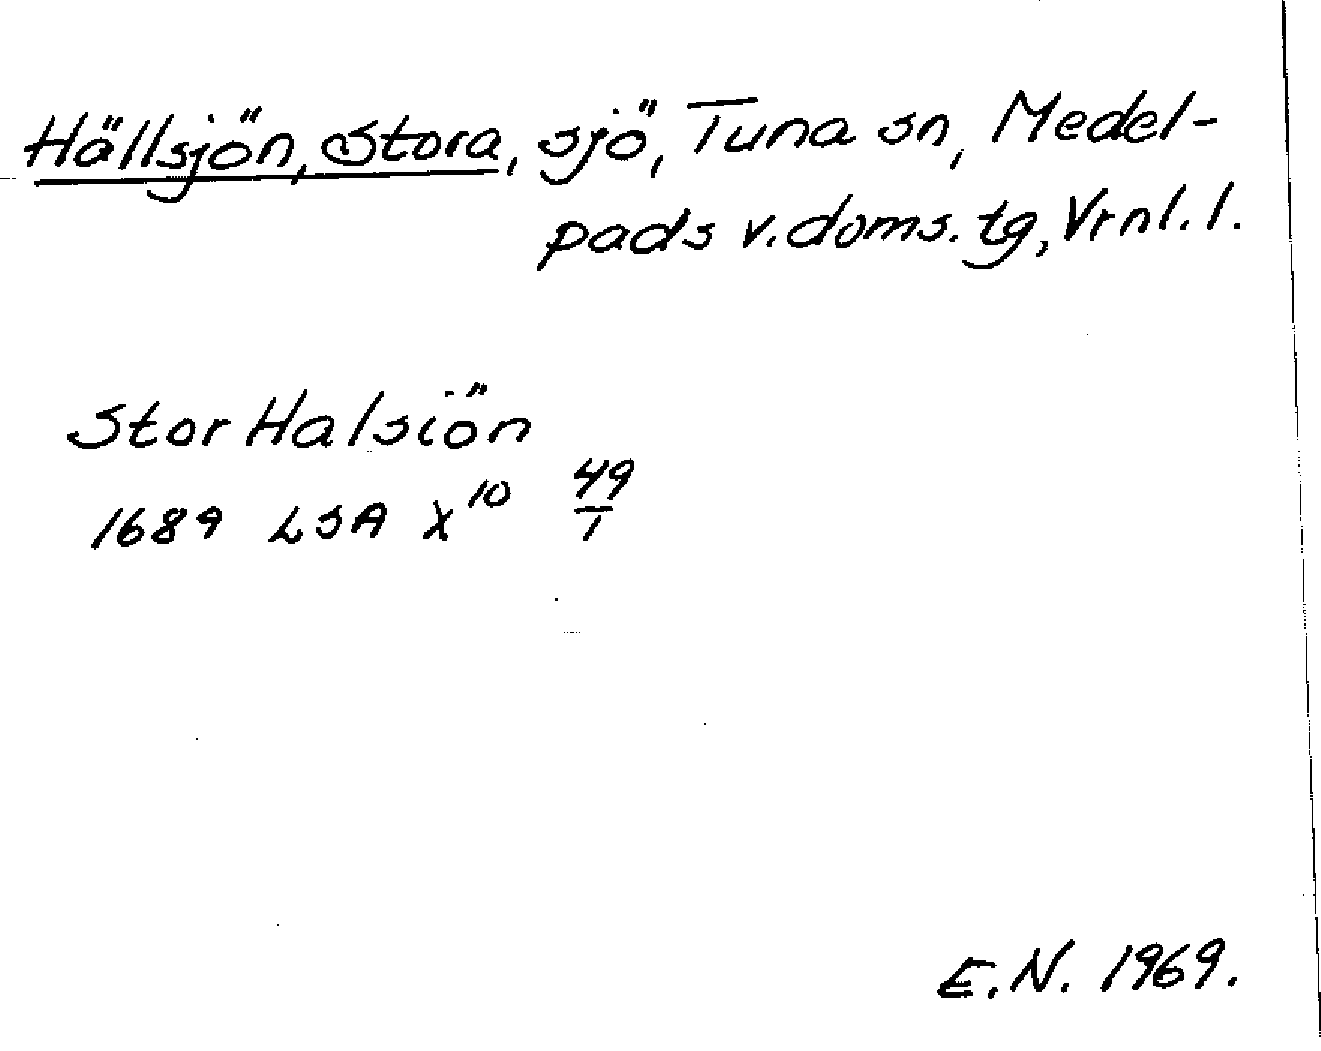 Hällsjön, Stora, sjö, Tuna sn, Medel-
pads v. doms. tg, Vrnl. l.
Stor Halsiön
1689 LSA X¹⁰ 49/1
E.N. 1969.